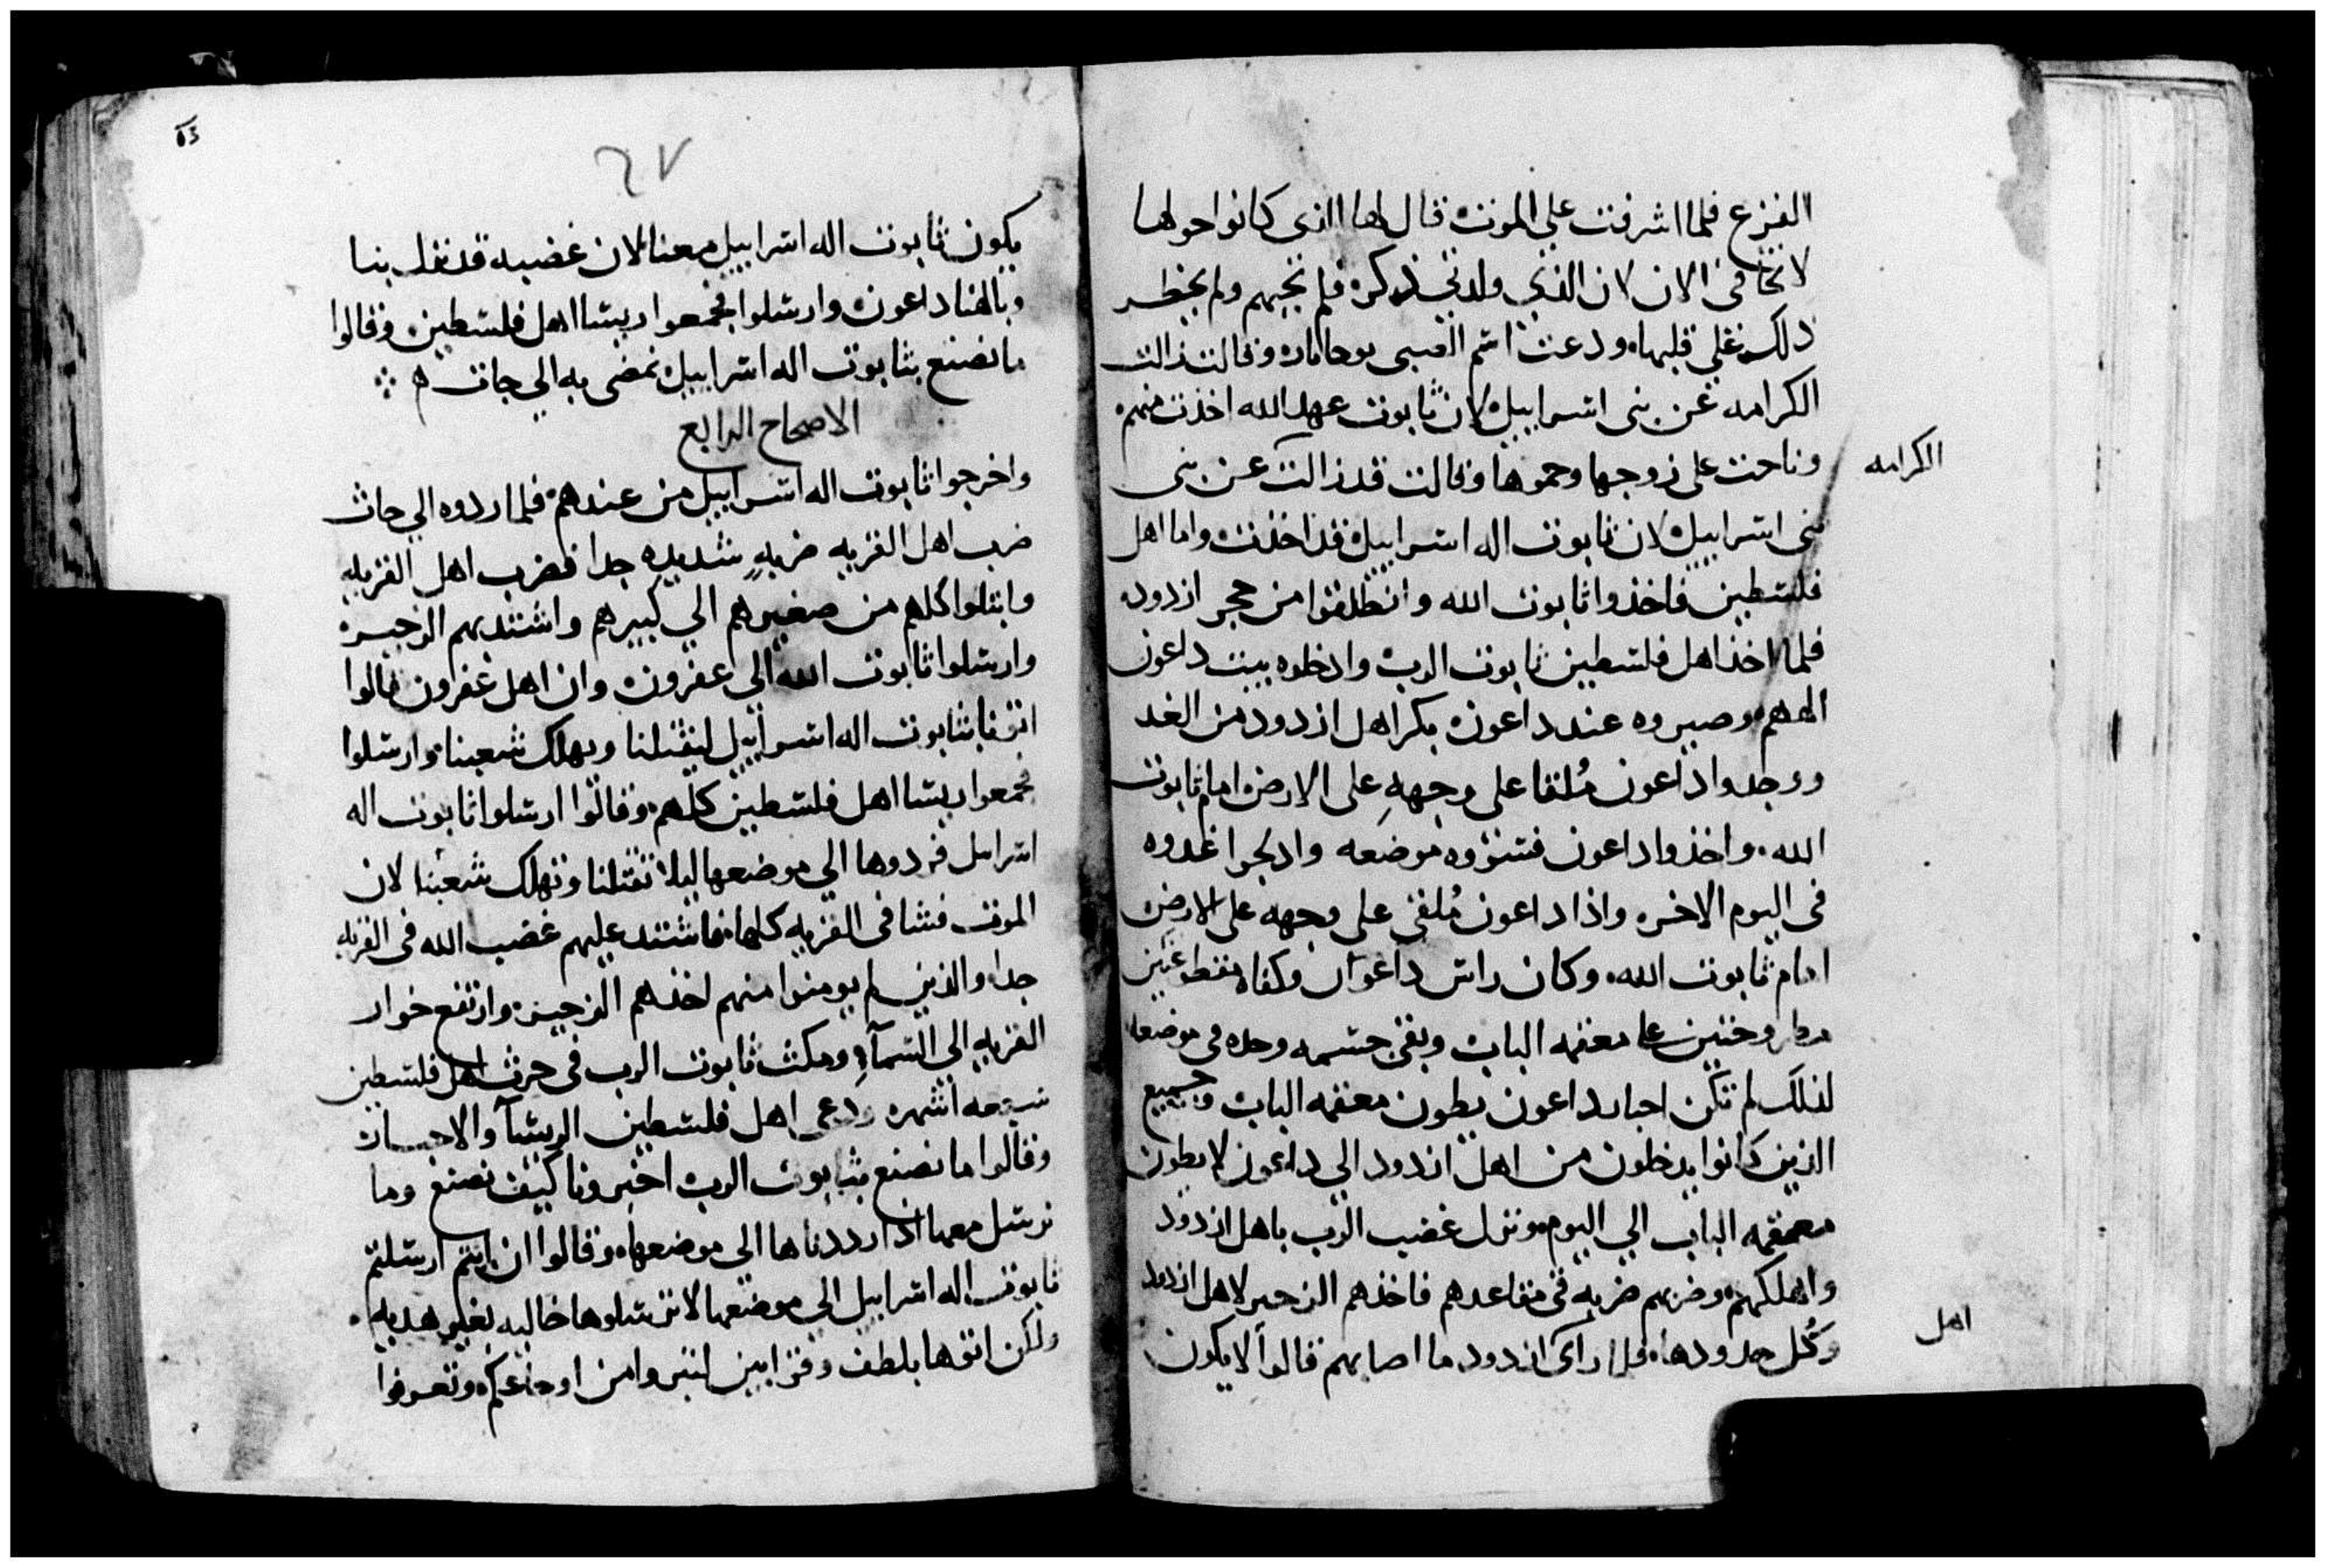 الفزع فلما اشرفت علي الموت قال لها الذى كانوا حولها
لا تخافى الان لان الذي ولدتي ذكره فلم تجبهم ولم يخطر
ذلك علي قلبها ودعت اسم الصبى يوحاباد وقالت زالت
الكرامه عن بنى اسراييل لان تابوت عهد الله اخذت منهم
وناحت على زوجها وحموها وقالت قد زالت عن بنى
الكرامه
بنى اسراييل لان تابوت اله اسراييل قد اخذت واما اهل
فلسطين فاخذوا تابوت الله وانطلقوا من حجر ازدود
فلما اخذ اهل فلسطين تابوت الرب وادخلوه بيت داعون
الههم وصيروه عند داعون بكر اهل ازدود من الغد
ووجدوا داعون مُلقا على وجههِ على الارض امام تابوت
الله واخذوا داعون فسووه موضعه وادلجوا غدوه
فى اليوم الاخره واذا داعون مُلقى على وجهه على الارض
امام تابوت الله وكان راس داعون وكفاه مقطوعتين
مطروحتين على معقمه الباب وبقى جسمه وحده فى موضعه
لذلك لم تكن احبار داعون يطون معقمه الباب وجميع
الذين كانوا يدخلون من اهل ازدود الي داعون لا يطون
معقمه الباب الي اليوم ونزل غضب الرب باهل ازدود
واهلكهم وضربهم ضربه فى مقاعدهم فاخذهم الزحير لاهل ازدود
وكُل حدودها فلما راى ازدود ما اصابهم قالوا لا يكون
اهل
٢٧
يكون تابوت اله اسراييل معنا لان غضبه قد نزل بنا
وبالهنا داعون وارسلوا فجمعوا ريسا اهل فلسطين وقالوا
ما نصنع بتابوت اله اسراييل نمضى به الي جات
الاصحاح الرابع
واخرجوا تابوت اله اسراييل من عندهم فلما ردوه الي جات
ضرب اهل القريه ضربهٍ شديده جدا فضرب اهل القريه
وابتلوا كلهم من صغيرهم الي كبيرهم واشتد بهم الزحير
وارسلوا تابوت الله الي عفرون وان اهل عفرون قالوا
اتونا بتابوت اله اسراييل ليقتلنا ويهلك شعبنا وارسلوا
فجمعوا ريسا اهل فلسطين كلهم وقالوا ارسلوا تابوت اله
اسرايل فردوها الي موضعها ليلا تقتلنا وتهلك شعبنا لان
الموت فشا فى القريه كلها فاشتد عليهم غضب الله فى القريه
جدا والذين لم يومنوا منهم اخذهم الزحير وارتفع خوار
القريه الي السمآءِ ومكث تابوت الرب فى حرث اهل فلسطين
سبعه اشهر ودعى اهل فلسطين الريسآ والاحبار
وقالوا ما نصنع بتابوت الرب اخبرونا كيف نصنع وما
نرسل معها اذا رددناها الى موضعها وقالوا ان انتم ارسلتم
تابوت اله اسراييل الي موضعها لا ترسلوها خاليه بغير هديه
ولكن اتوها بلطف وقرابين لتبروا من اوجاعكم وتعرفوا